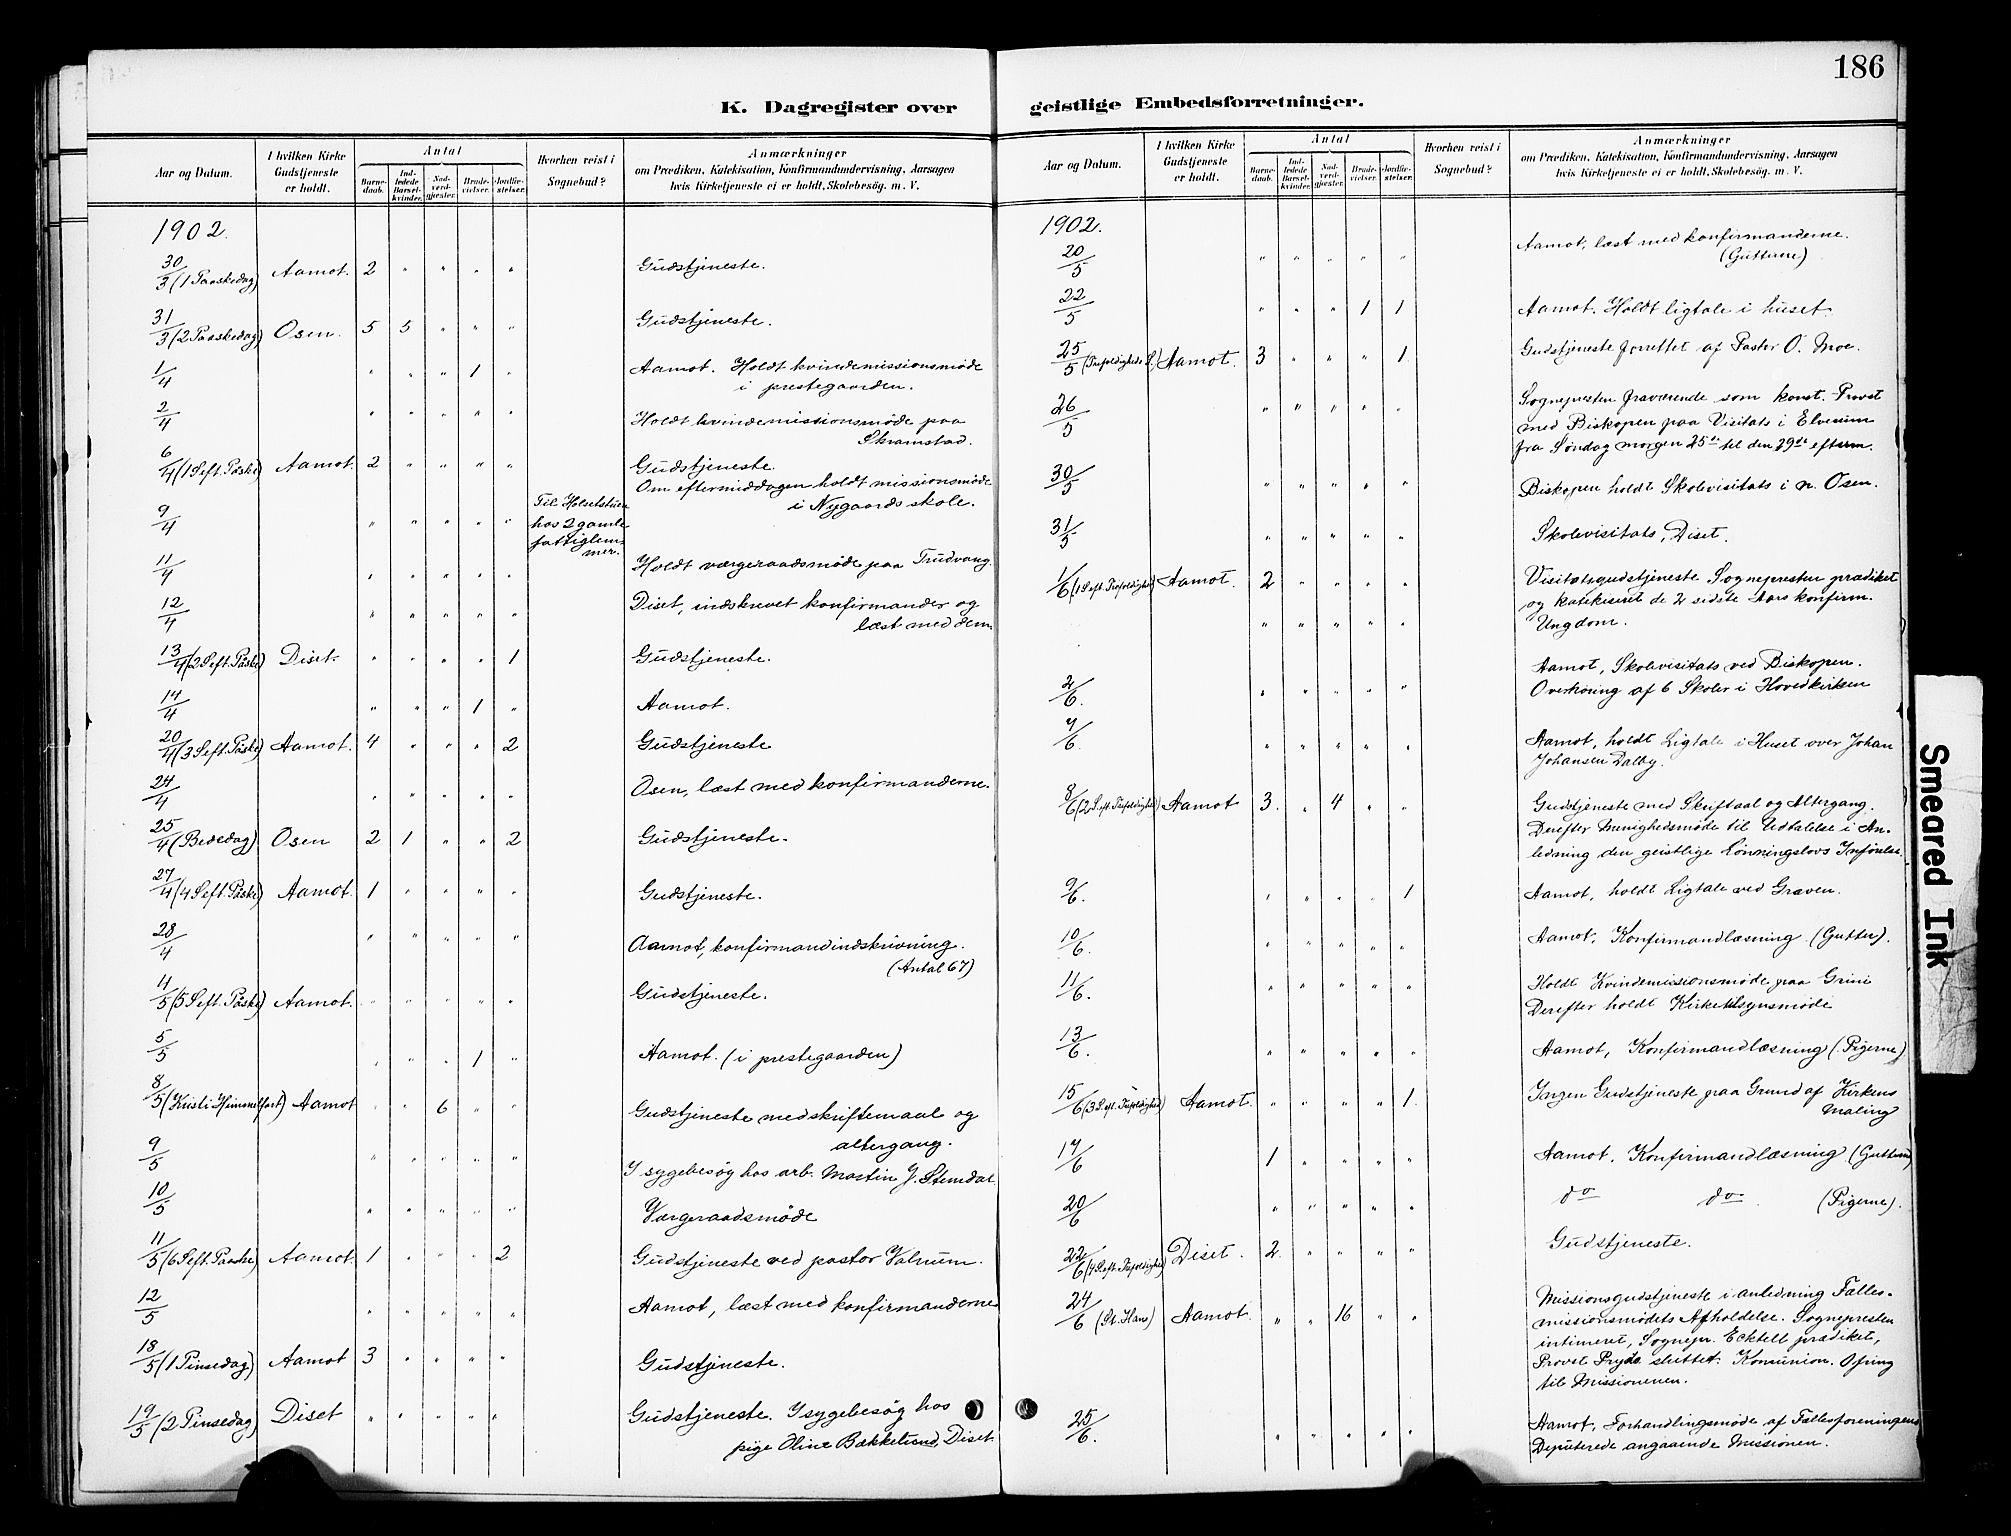 186
K. Dagregister over
geistlige Embedsforretninger.
Aar og Datum.
I hvilken Kirke Gudstjeneste er holdt.
Antal
Barnedaab.
Indledede Barselkvinder.
Nadverdgjæster.
Brudevielser.
Jordfæstelser.
Hvorhen reist i Sognebud?
Anmærkninger
om Prædiken, Katekisation, Konfirmandundervisning, Aarsagen
hvis Kirketjeneste ei er holdt, Skolebesøg. m. V.
1902.
30/3 (1 Paaskedag) Aamot. 2 " " " " Gudstjeneste.
31/3 (2 Paaskedag) Osen. 5 5 " " " Gudstjeneste.
1/4 " " " 1 " Aamot. Holdt kvindemissionsmøde
i prestegaarden.
2/4 " " " " " Holdt kvindemissionsmøde paa
Skramstad.
6/4 (1 S eft. Påske) Aamot. 2 " " " " Gudstjeneste.
Om eftermiddagen holdt missionsmøde
i Nygaards skole.
9/4 " " " " " Til Holsetstuen
hos 2 gamle
fattiglem-
mer.
11/4 " " " " " Holdt værgeraadsmøde paa Trudvang.
12/4 " " " " " Diset, indskrevet konfirmander og
læst med dem.
13/4 (2 S eft. Påske) Diset. " " " " 1 Gudstjeneste.
14/4 " " " 1 " Aamot.
20/4 (3 S eft. Påske) Aamot. 4 " " " 2 Gudstjeneste
24/4 " " " " " Osen, læst med konfirmanderne.
25/4 (Bededag) Osen 2 1 " " 2 Gudstjeneste.
27/4 (4 S eft. Påske) Aamot. 1 " " " " Gudstjeneste.
28/4 " " " " " Aamot, konfirmandindskrivning.
(Antal 67)
4/5 (5 S eft. Påske) Aamot. " " " " " Gudstjeneste.
5/5 " " " 1 " Aamot. (i prestegaarden)
8/5 (Kristi Himmelfart) Aamot " " 6 " " Gudstjeneste med skriftemaal og
altergang.
9/5 " " " " " I sygebesøg hos arb. Martin J. Stemdal.
10/5 " " " " " Værgeraadsmøde
11/5 (6 S eft. Paaske) Aamot. 1 " " " 2 Gudstjeneste ved pastor Valnum.
12/5 " " " " " Aamot, læst med konfirmanderne
18/5 (1 Pinsedag) Aamot 3 " " " " Gudstjeneste.
19/5 (2 Pinsedag) Diset " " " " " Gudstjeneste. I sygebesøg hos
pige Oline Bækkelund, Diset.
Aar og Datum.
I hvilken Kirke Gudstjeneste er holdt.
Antal
Barnedaab.
Indledede Barselkvinder.
Nadverdgjæster.
Brudevielser.
Jordfæstelser.
Hvorhen reist i Sognebud?
Anmærkninger
om Prædiken, Katekisation, Konfirmandundervisning, Aarsagen
hvis Kirketjeneste ei er holdt, Skolebesøg. m. V.
1902.
20/5 " " " " " Aamot, læst med konfirmanderne.
(Guttene)
22/5 " " " 1 1 Aamot. Holdt ligtale i huset.
25/5 (Trefoldigheds S.) Aamot. 3 " " " 1 Gudstjeneste forrettet af Pastor O. Moe.
26/5 " " " " " Sognepresten fraværende som konst. Provst
med Biskopen paa Visitats i Elverum
fra Søndag morgen 25de til den 29de efterm.
30/5 " " " " " Biskopen holdt Skolevisitats i n. Osen.
31/5 " " " " " Skolevisitats, Diset.
1/6 (1 S eft. Trefoldighed) Aamot. 2 " " " " Visitatsgudstjeneste Sognepresten prædiket
og katekiseret de 2 sidste Aars konfirm.
" " " " " Ungdom.
2/6. " " " " " Aamot, Skolevisitats ved Biskopen.
Overhøring af 6 Skoler i Hovedkirken
7/6. " " " " " Aamot, holdt Ligtale i Huset over Johan
Johansen Dalby.
8/6 (2 S. eft. Trefoldighed) Aamot 3. " 4 " " Gudstjeneste med Skriftaal og Altergang.
Derefter Menighedsmøde til Udtalelse i An-
ledning den geistlige Lønningslovs Inførelse.
9/6. " " " " 1 Aamot, holdt Ligtale ved Graven.
10/6. " " " " " Aamot, Konfirmandlæsning (Gutter).
11/6. " " " " " Holdt Kvindemissionsmøde paa Grini
Derefter holdt Kirketilsynsmøde
13/6. " " " " " Aamot, Konfirmandlæsning (Pigerne)
15/6 (3 S. eft. Trefoldighed) Aamot. " " " " 1. Ingen Gudstjeneste paa Grund af Kirkens
Maling
17/6 1 " " " " Aamot, Konfirmandlæsning (Guttene)
20/6 " " " " " do do (Pigerne).
22/6 (4 S eft. Trefoldighed) Diset. 2. " " " " Gudstjeneste.
24/6 (St. Hans) Aamot. " " 16 " " Missionsgudstjeneste i anledning Fælles-
missionsmødets Afholdelse. Sognepresten
intimeret, Sognepr. Ecktell prædiket,
Provst Prydz sluttet. Komunion. Ofring
til Missionenen.
25/6. " " " " " Aamot, Forhandlingsmøde af Fællesforeningens
Deputerede angaaende Missionen.
Smeared Ink